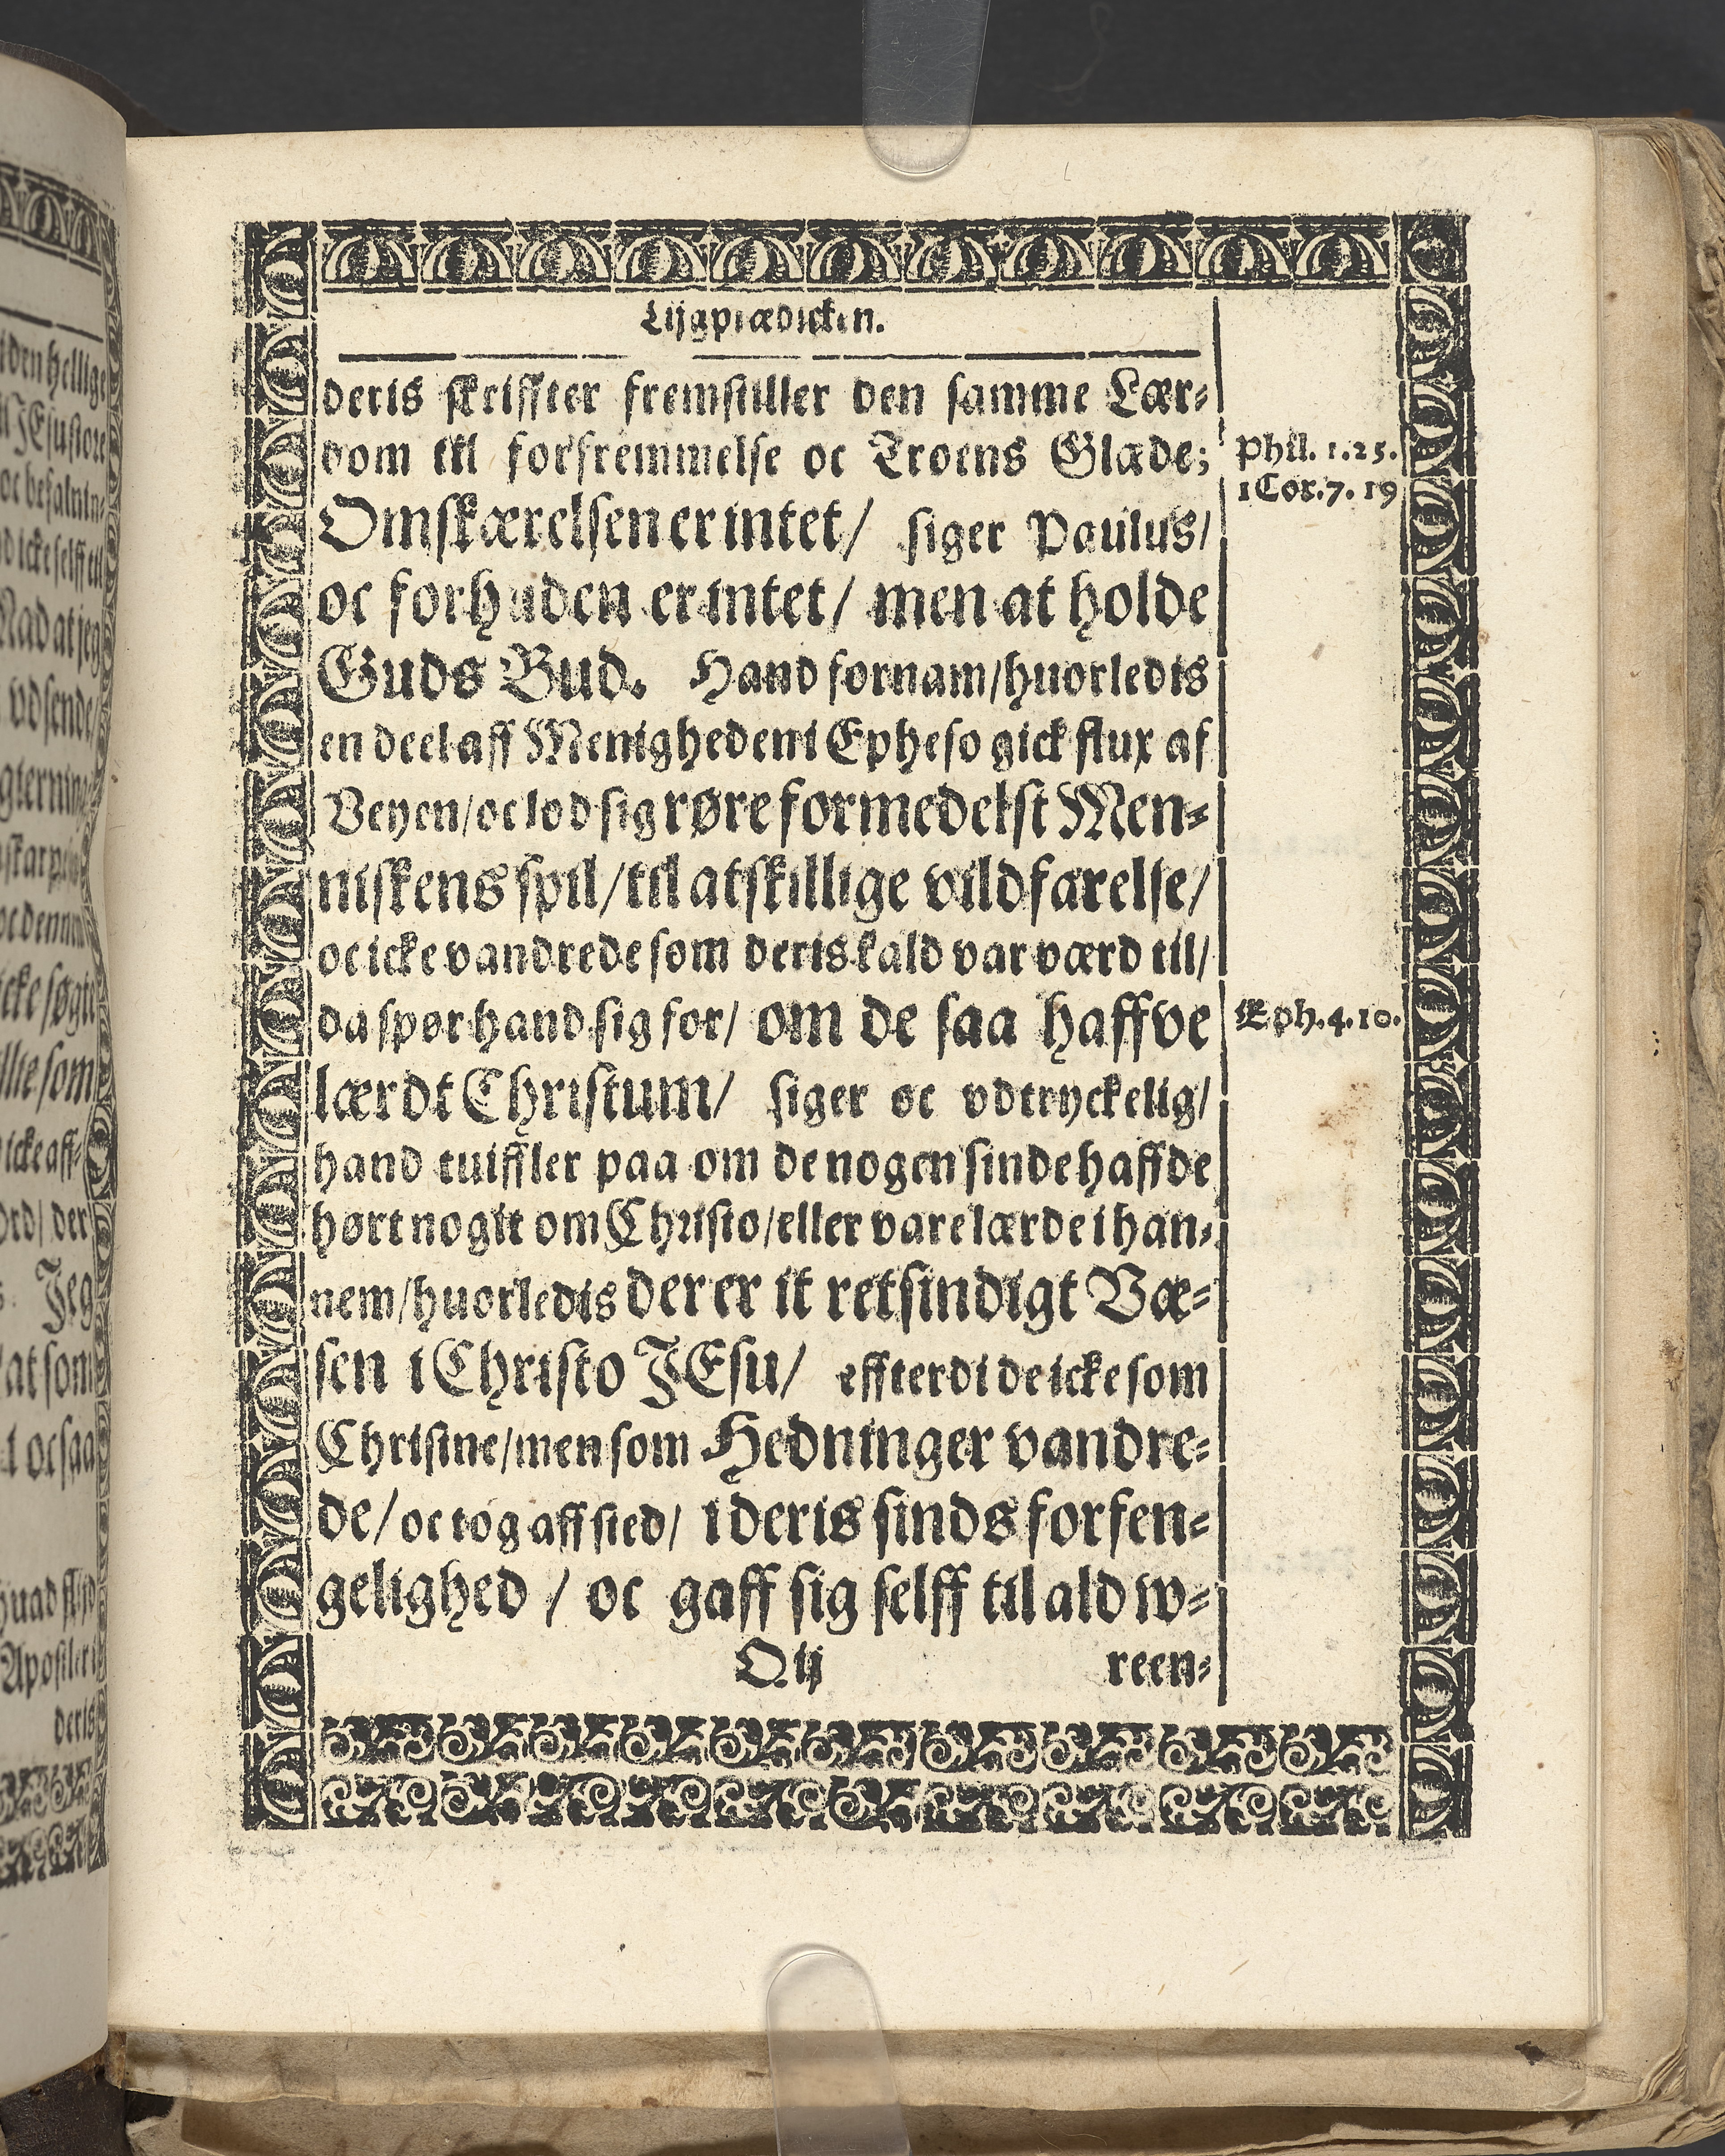 Lijgprædicken.
deris skriffter fremstiller den samme Lær-
dom til forfremmelse oc Troens Glæde;
Phil. 1.25.
1 Cor. 7. 19
Omskærelsen er intet/ siger Paulus/
oc forhuden er intet/ men at holde
Guds Bud. Hand fornam/ huorledis
en deel aff Menigheden i Epheso gick flux af
Veyen/ oc lod sig røre formedelst Men-
niskens spil/ til atskillige vildfarelse/
oc icke vandrede som deris kald var værd til/
da spør hand sig for/ om de saa haffve
Eph. 4. 10.
lærdt Christum/ siger oc vdtryckelig/
hand tuiffler paa om de nogen sinde haffde
hørt nogit om Christo/ eller vare lærde i han-
nem/ huorledis der er it retsindigt Væ-
sen i Christo JEsu/ effterdi de icke som
Christne/ men som Hedninger vandre-
de/ oc tog aff sted/ i deris sinds forfen-
gelighed / oc gaff sig selff til ald w-
Q ij reen-
den hellige
JEsu store
oc befalnin-
icke selff til
Naad at jeg
vdsende/
icke søgte
som
icke aff-
ord/ der
Jeg
at som
oc saa
huad flijd
Apostler i
deris